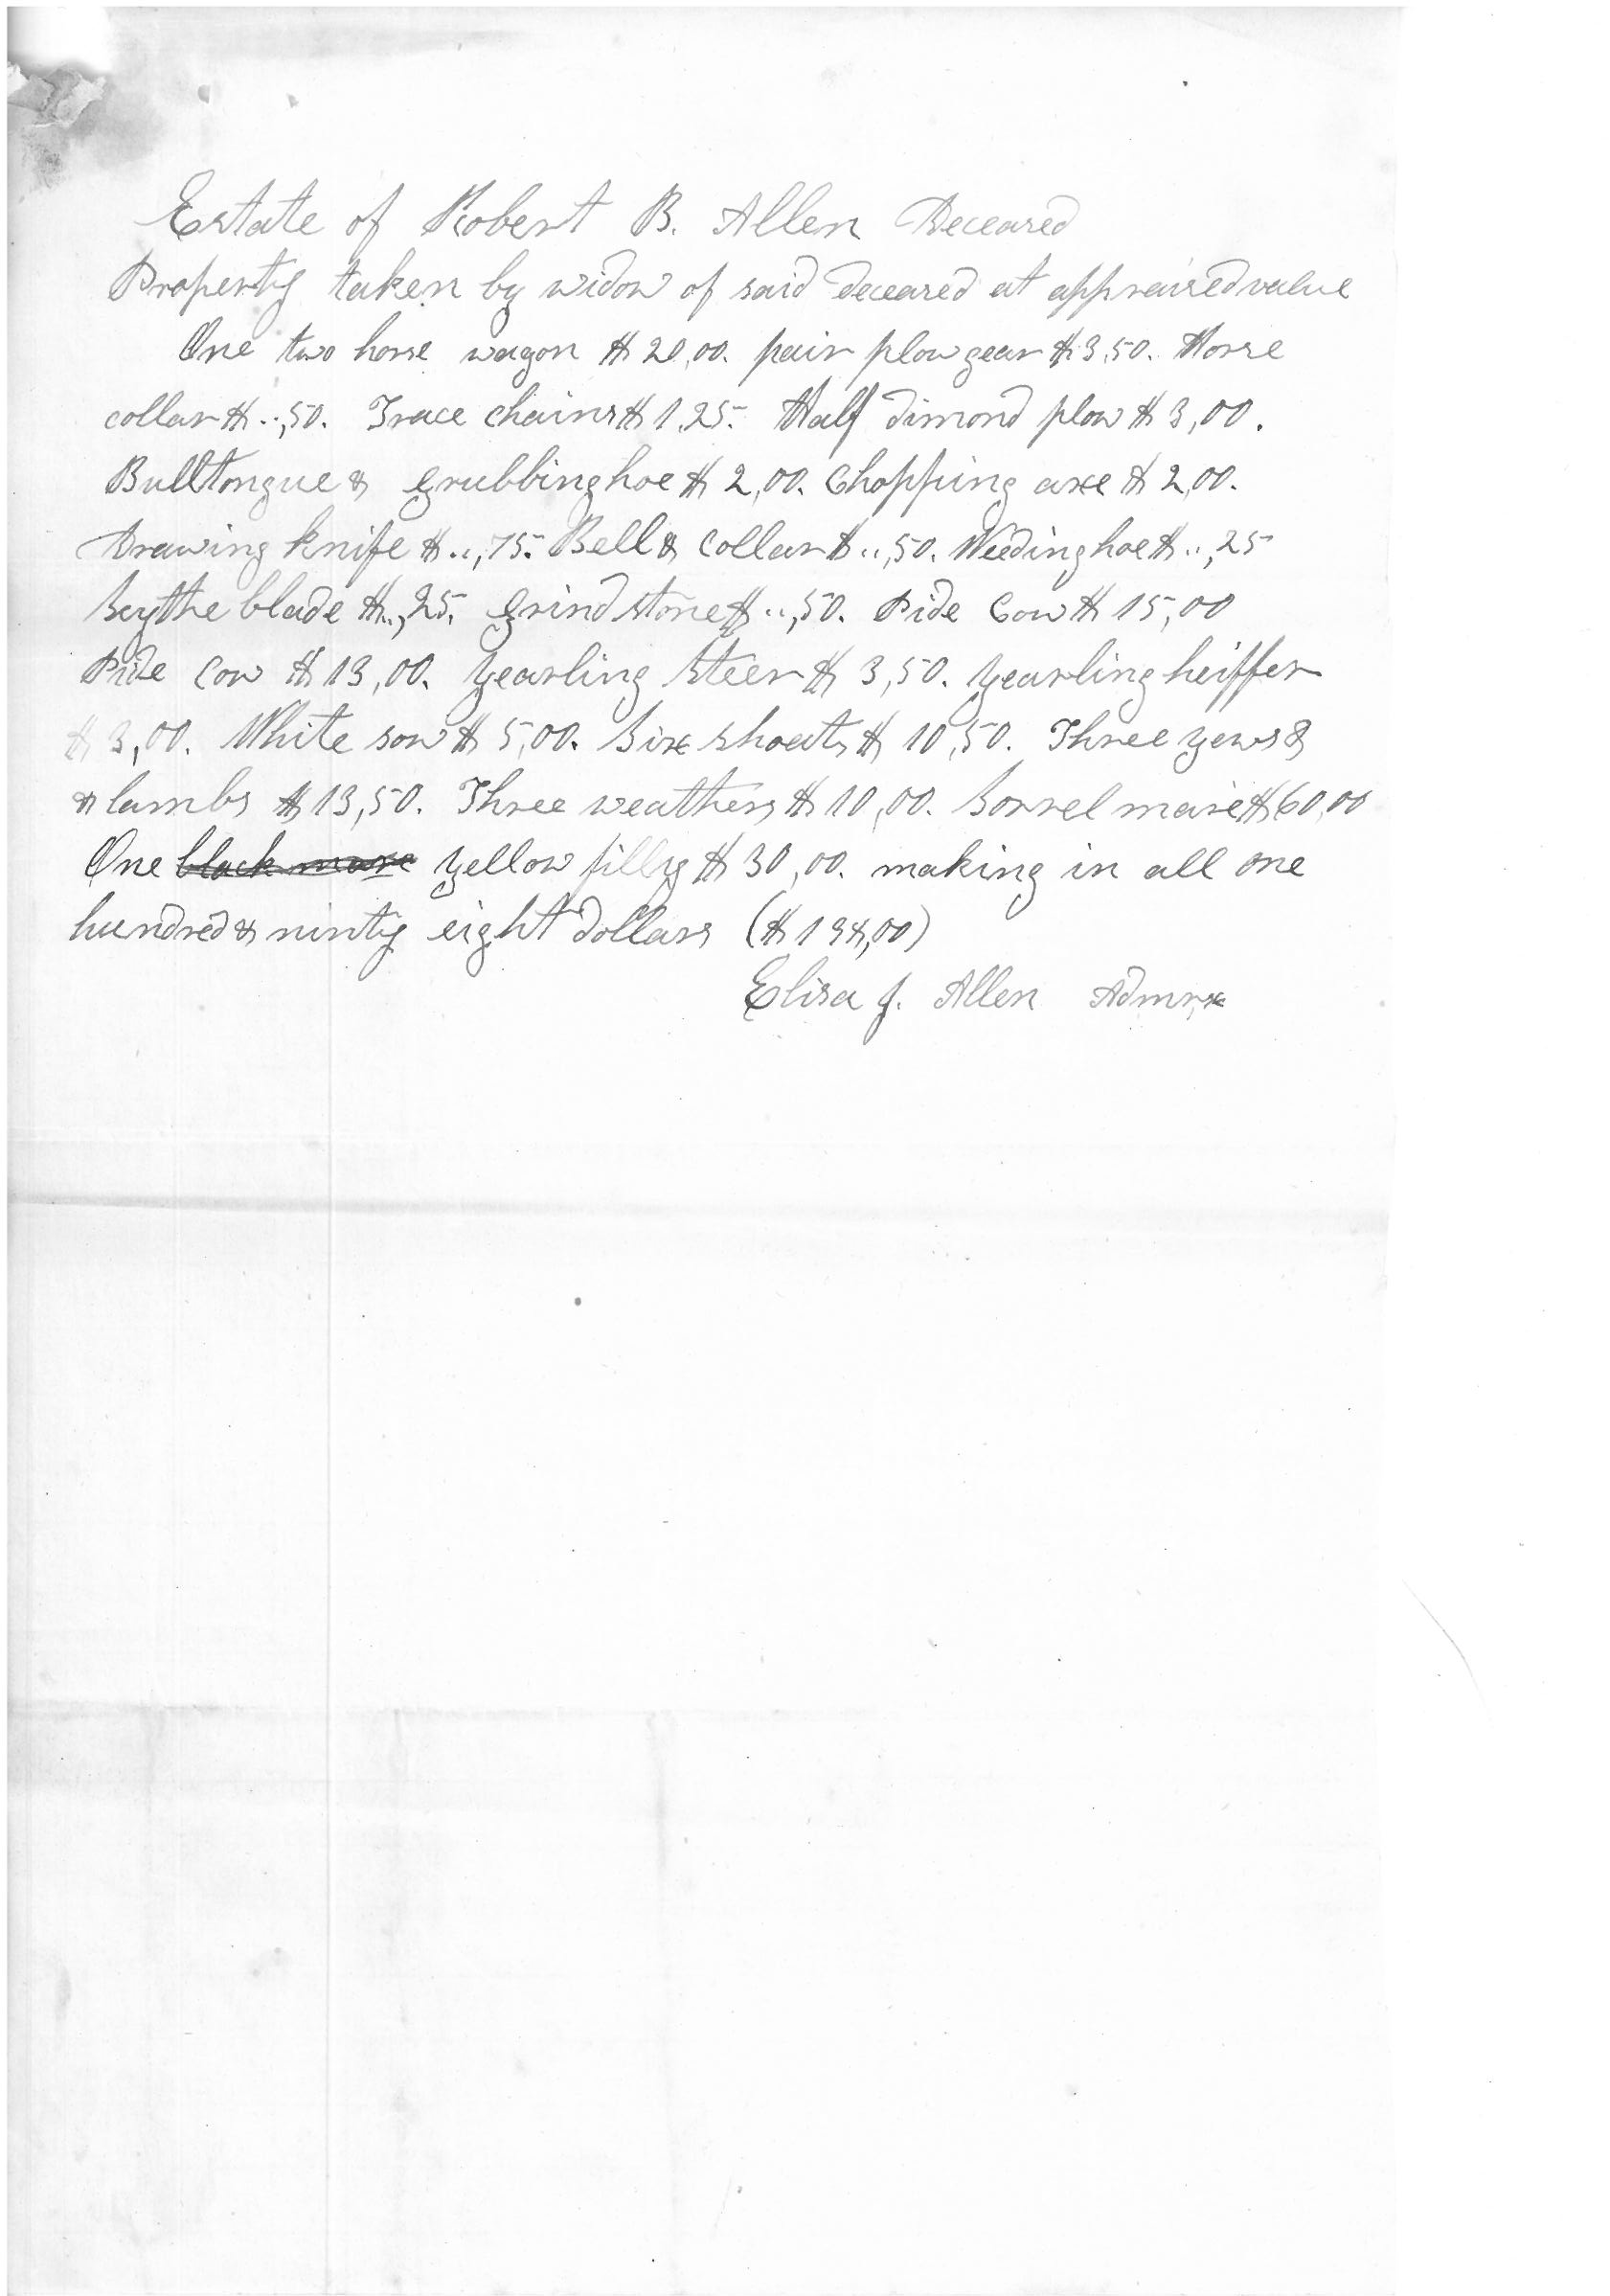 Estate of Robert B. Allen Deceased
Property taken by widow of said deceased at appraised value
One two horse wagon $20,00. pair plow gear $3,50. Horse
collar $..,50. Trace chains $1,25. Half dimond plow $3,00.
Bulltongue & grubbing hoe $2,00. Chopping axe $2,00.
Drawing knife $..,75. Bell & Collar $..,50. Weeding hoe $..,25
Scythe blade $..,25. Grind stone $..,50. Pide Cow $15,00
Pide Cow $13,00. yearling Steer $3,50. yearling heiffer
$3,00. White sow $5,00. Six Shoats $10,50. Three yews &
& lambs $13,50. Three weathers $10,00. Sorrel mare $60,00
One black mare yellow filly $30,00. making in all one
hundred & ninty eight dollars ($198,00)
Elisa J. Allen Admrx